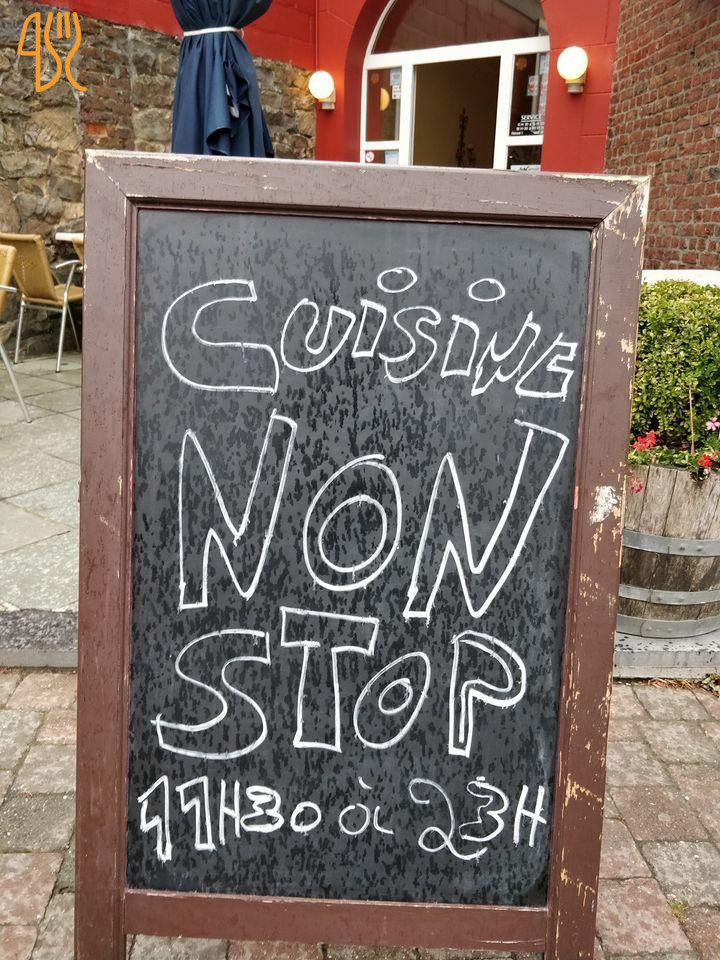 SERVICE
Cuisine
NON
STOP
11H30 à 23H